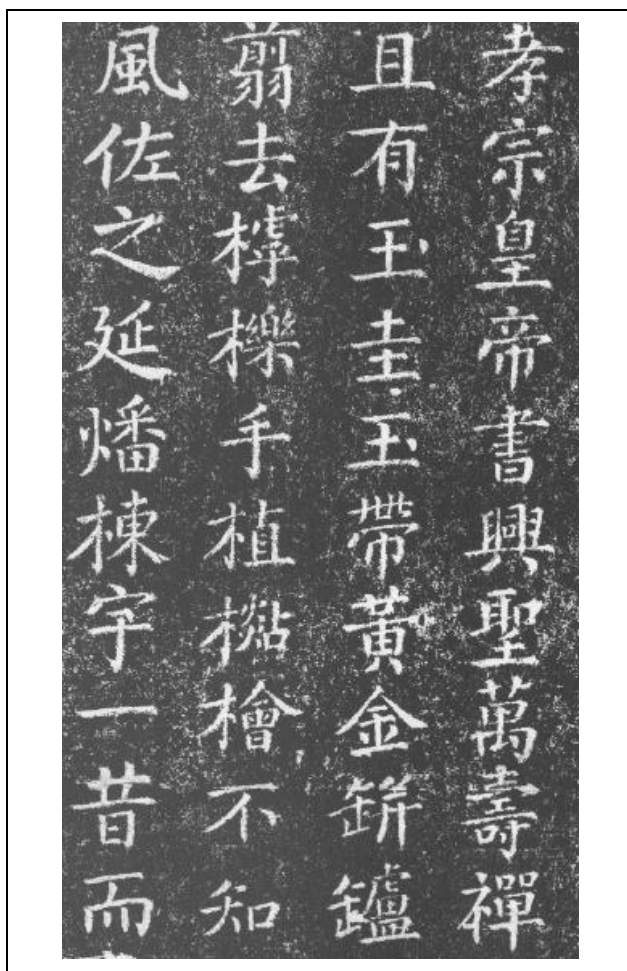 孝宗皇帝書興聖萬壽禪
且有玉圭玉帶黃金缾罏
翦去樗櫟手植檆檜不知
風佐之延燔棟宇一昔而